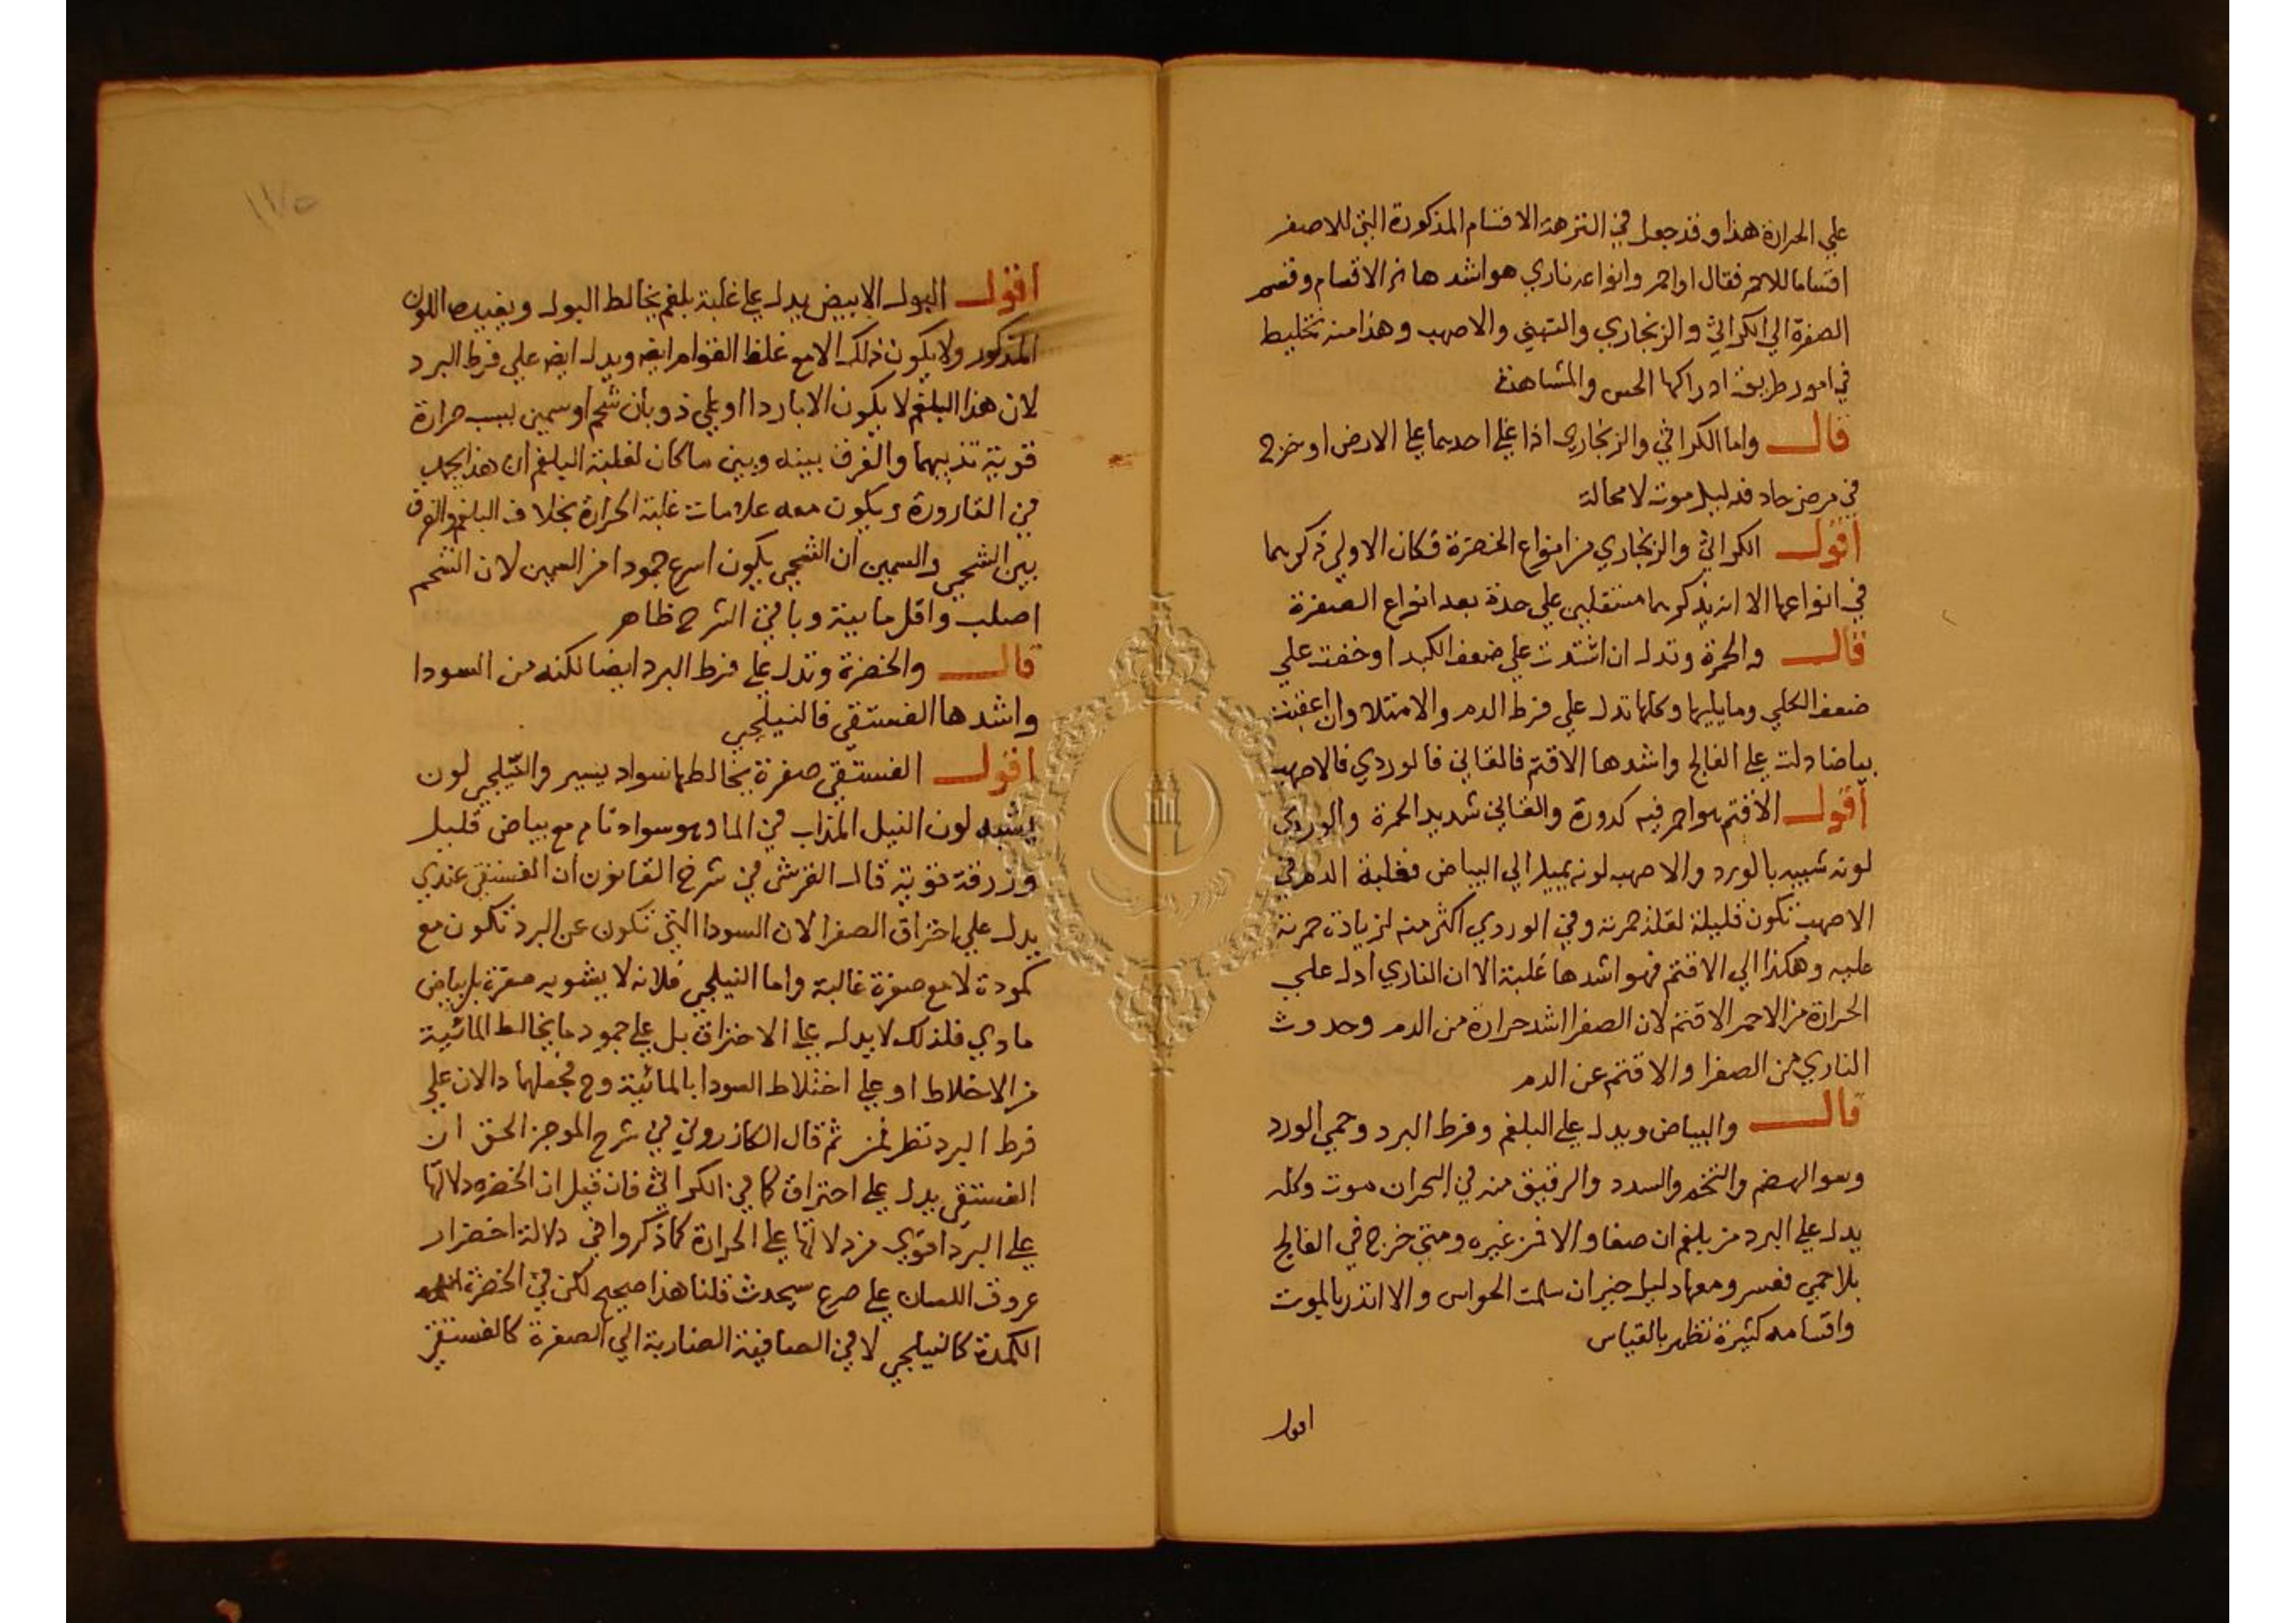 علي الحرارة هذا وقد جعل في النزهة الاقسام المذكورة التي للاصفر
اقساما للاحمر فقال او احمر وانواعه ناري هو اشدها ثم الاقسام وقسم
الصفرة الي الكراثي والزنجاري والتبني والاصهب وهذا منه تخليط
في امور طريقة ادراكها الحس والمشاهدة
قال واما الكراثي والزنجاري اذا غلي احدهما علي الارض او خرج
في مرض حاد فدليل موت لا محالة
اقول الكراثي والزنجاري من انواع الخضرة فكان الاولي ذكرهما
في انواعها الا انه يذكرهما مستقلين علي حدة بعد انواع الصفرة
قال والحمرة وتدل ان اشتدت علي ضعف الكبد او خفت علي
ضعف الكلي وما يليها وكلها تدل علي فرط الدم والامتلا وان اعقبت
بياضا دلت علي الفالج واشدها الاقتم فالقاني فالوردي فالاصهب
اقول الاقتم هو احمر فيه كدورة والقاني شديد الحمرة والوردي
لونه شبيه بالورد والاصهب لونه يميل الي البياض فغلبة الدم في
الاصهب تكون قليلة لقلة حمرته وفي الوردي اكثر منه لزيادة حمرته
عليه وهكذا الي الاقتم فهو اشدها غلبة الا ان الناري ادل علي
الحرارة من الاحمر الاقتم لان الصفرا اشد حرارة من الدم وحدوث
الناري من الصفرا والاقتم عن الدم
قال والبياض ويدل علي البلغم وفرط البرد وحمي الورد
وسو الهضم والتخم والسدد والرقيق منه في البحران موت وكله
يدل علي البرد من بلغم ان صفا والا فمن غيره ومتي خرج في الفالج
بلا حمي فعسر ومعها دليل خير ان سلمت الحواس والا انذر بالموت
واقسامه كثيرة تظهر بالقياس
اقول
اقول البول الابيض يدل علي غلبة بلغم يخالط البول ويفيده اللون
المذكور ولا يكون ذلك الا مع غلظ القوام ايضه ويدل ايضه علي فرط البرد
لان هذا البلغم لا يكون الا باردا او علي ذوبان شحم او سمين بسبب حرارة
قوية تذيبهما والفرق بينه وبين ما كان لغلبة البلغم ان هذا يجمد
في القارورة ويكون معه علامات غلبة الحرارة بخلاف البلغم والفرق
بين الشحمي والسمين ان الشحمي يكون اسرع جمودا من السمين لان الشحم
اصلب واقل مايية وباقي الشرح ظاهر
قال والخضرة وتدل علي فرط البرد ايضا لكنه من السودا
واشدها الفستقي فالنيلجي
اقول الفستقي صفرة يخالطها سواد يسير والنيلجي لون
يشبه لون النيل المذاب في الما وهو سواد تام مع بياض قليل
وزرقة قوية قال القرشي في شرح القانون ان الفستقي عندي
يدل علي احتراق الصفرا لان السودا التي تكون عن البرد تكون مع
كمودة لا مع صفرة غالبة واما النيلجي فلانه لا يشوبه صفرة بل بياض
مادي فلذلك لا يدل علي الاحتراق بل علي جمود ما يخالط المائية
من الاخلاط او علي اختلاط السودا بالمائية وح فجعلهما دالان علي
فرط البرد نظر ثم قال الكازروني في شرح الموجز الحق ان
الفستقي يدل علي احتراق كما في الكراثي فان قيل ان الخضرة دلالتها
علي البرد اقوي من دلالتها علي الحرارة كما ذكروا في دلالة اخضرار
عروق اللسان علي صرع سيحدث قلنا هذا صحيح لكن في الخضرة
الكمدة كالنيلجي لا في الصافية الضاربة الي الصفرة كالفستقي